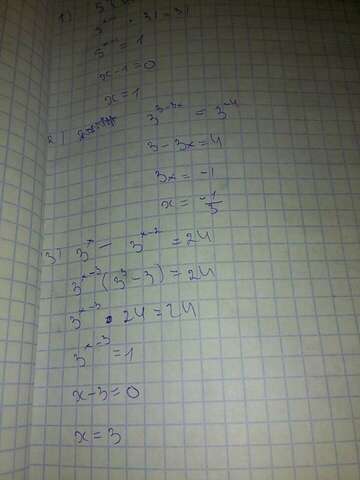 1)
· 31 = 31
= 1
x-1=0
x=1
2) 3^{3-3x} = 3^{-4}
3-3x=4
3x=-1
x = -1/3
3) 3^x - 3^{x-2} = 24
3^{x-3}(3^3-3)=24
3^{x-3} · 24=24
3^{x-3}=1
x-3=0
x=3